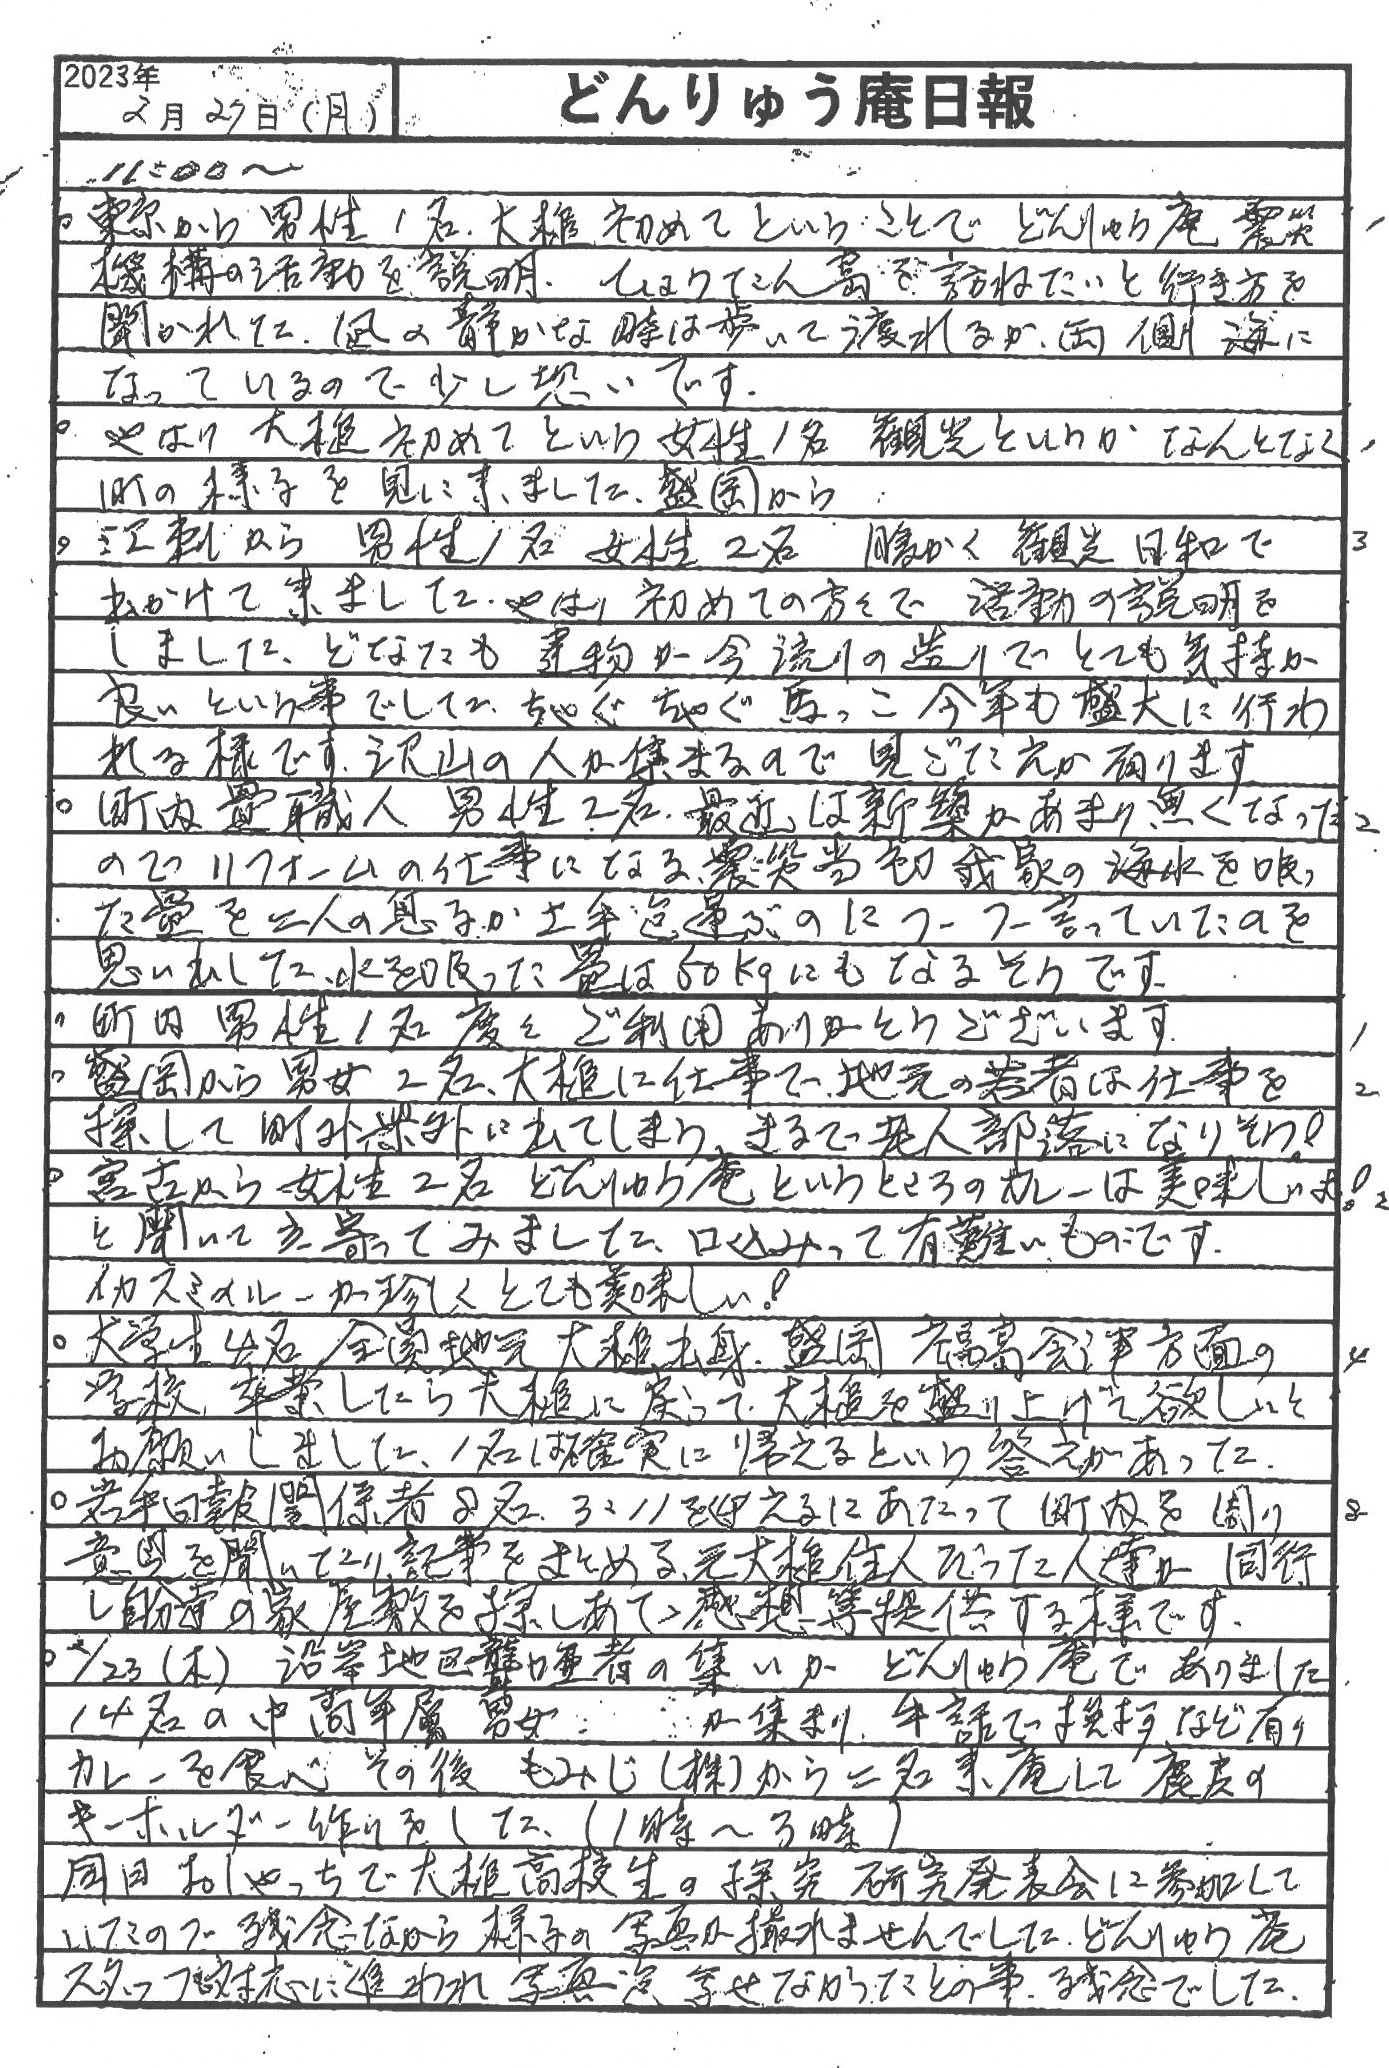 2023年
2月27日(月)
どんりゅう庵日報
11:00〜
○東京から男性1名.大槌初めてということで どんりゅう庵 震災 1
機構の活動を説明. ひょうたん島を訪ねたいと行き方を
聞かれた.風の静かな時は歩いて渡れるが、両側海に
なっているので少し恐いです.
○やはり大槌初めてという女性1名 観光というかなんとなく 1
町の様子を見に来ました.盛岡から
○江刺から 男性1名 女性2名 暖かく観光日和で 3
出かけて来ました.やはり初めての方々で 活動の説明を
しました、どなたも建物が今流りの造りでとても気持が
良いという事でした.ちゃぐちゃぐ馬っこ今年も盛大に行わ
れる様です.沢山の人が集まるので見ごたえが有ります
○町内畳職人 男性2名.最近は新築があまり無くなった 2
のでリフォームの仕事になる、震災当初我家の海水を吸っ
た畳を二人の息子が土手迄運ぶのにフーフー言っていたのを
思い出した、水を吸った畳は50kgにもなるそうです.
○町内男性1名 度々ご利用ありがとうございます. 1
○盛岡から男女2名、大槌に仕事で、地元の若者は仕事を 2
探して町外県外に出てしまう、まるで老人部落になりそう!
○宮古から女性2名 どんりゅう庵というところのカレーは美味しいよ! 2
と聞いて立寄ってみました、口込みって有難いものです.
イカスミカレーが珍しくとても美味しい!
○大学生4名 全員地元大槌出身.盛岡 福島会津方面の 4
学校、卒業したら大槌に戻って、大槌を盛り上げて欲しいと
お願いしました、1名は確実に帰えるという答えがあった.
○岩手日報関係者8名.3:11を迎えるにあたって町内を周り 8
意見を聞いたり記事をまとめる、元大槌住人だった人達が同行
し自分の家屋敷を探しあて、感想等提供する様です.
○2/23(木) 沿岸地区聾唖者の集いが どんりゅう庵でありました
14名の中高年層男女 が集まり、手話で挨拶など有り
カレーを食べ その後 もみじ(株)から二名来庵して鹿皮の
キーホルダー作りをした、(1時〜3時)
同日おしゃっちで大槌高校生の探究研究発表会に参加して
いたので残念ながら様子の写真が撮れませんでした.どんりゅう庵
スタッフ対応に追われ写真迄写せなかったとの事.残念でした.